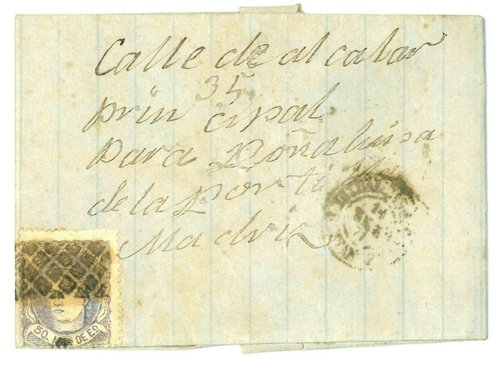 Calle de alcalar
35
prin cipal
para Doña luisa
de la Porti
Madriz
50 MILS DE EO